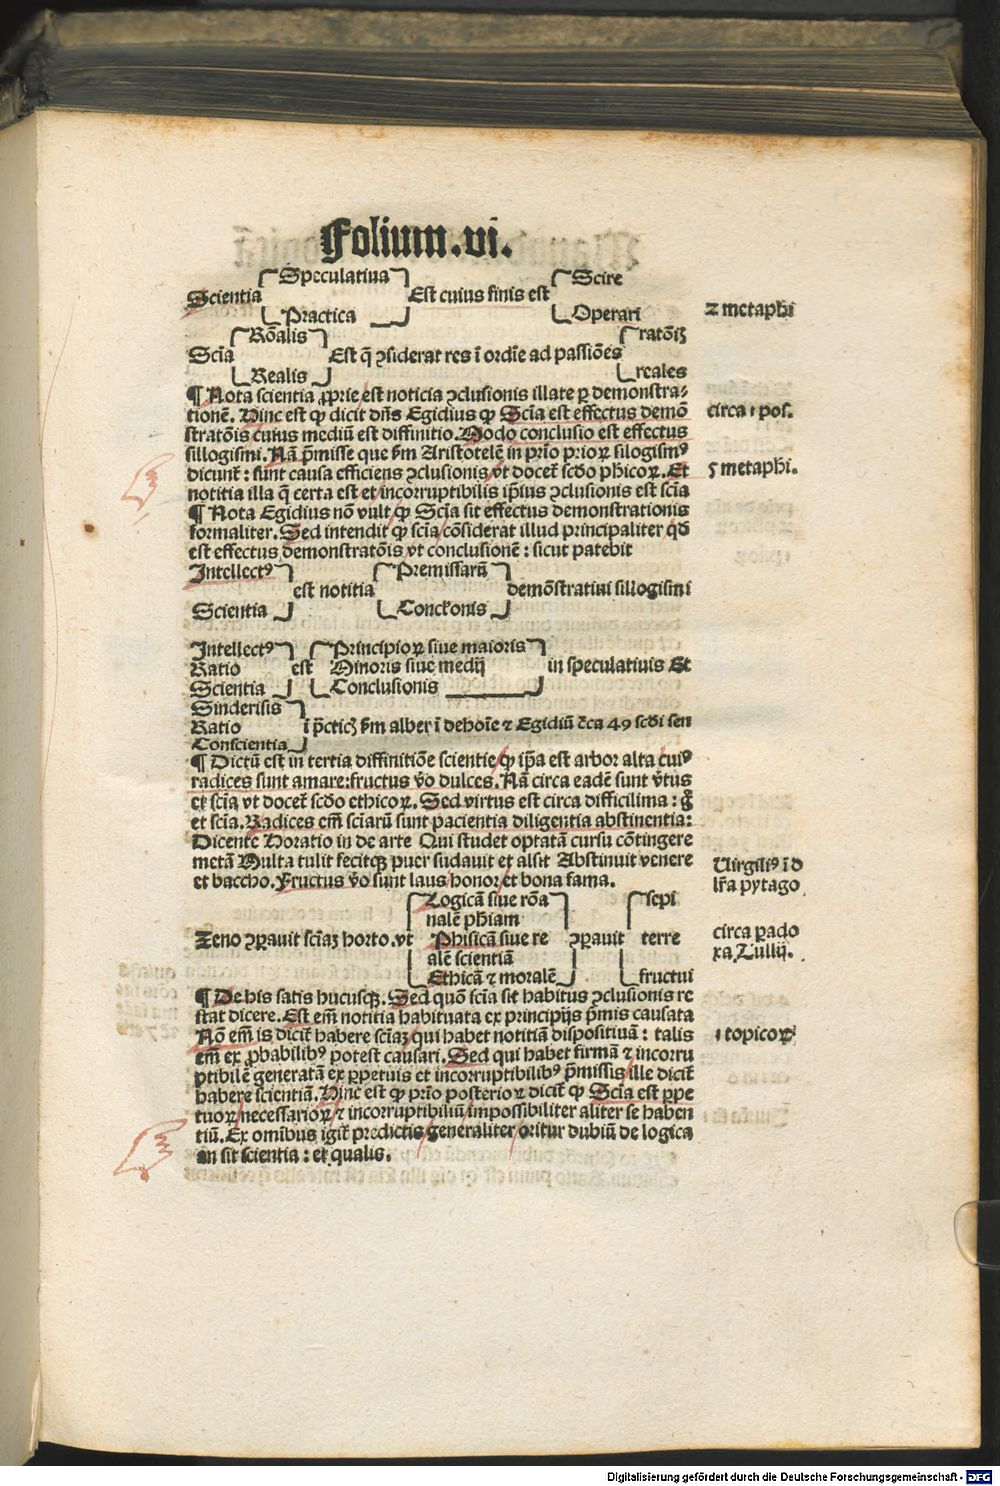 Folium.vi.
Speculatiua Scire
Scientia Est cuius finis est
Practica Operari
2 metaphi
Rõalis ratõiꝫ
Sciã Est q̃ ꝯsiderat res ĩ ordĩe ad passiões
Realis reales
¶ Nota scientia ꝓprie est noticia ꝯclusionis illate ꝑ demonstra-
tionẽ. Hinc est ꝙ dicit dñs Egidius ꝙ Scĩa est effectus demõ
circa 1 pos.
stratõis cuius mediũ est diffinitio. Modo conclusio est effectus
sillogismi. Nã p̃misse que ẜm Aristotelẽ in prĩo prioꝝ silogismꝰ
dicunt̃ : sunt causa efficiens ꝯclusionis vt docet̃ scḋo phicoꝝ. Et
5 metaphi.
notitia illa q̃ certa est et incorruptibilis ip̃ius ꝯclusionis est scĩa
¶ Nota Egidius nõ vult ꝙ Scĩa sit effectus demonstrationis
formaliter. Sed intendit ꝙ scĩa cõsiderat illud principaliter qḋ
est effectus demonstratõis vt conclusionẽ : sicut patebit
Intellectꝰ Premissarũ
est notitia demõstratiui sillogismi
Scientia Conclonis
Intellectꝰ Principioꝝ siue maioris
Ratio est Minoris siue medij in speculatiuis Et
Scientia Conclusionis
Sinderisis
Ratio ĩ p̃cticꝫ ẜm alber ĩ dehoĩe ⁊ Egidiũ c̃ca 49 scḋi sen
Conscientia
¶ Dictũ est in tertia diffinitiõe scientie ꝙ ip̃a est arbor alta cuiꝰ
radices sunt amare:fructus ṽo dulces. Nã circa eadẽ sunt ṽtus
et scĩa vt docet̃ scḋo ethicoꝝ. Sed virtus est circa difficilima : g̃
et scĩa. Radices em̃ sciarũ sunt pacientia diligentia abstinentia:
Dicente Horatio in de arte Qui studet optatã cursu cõtingere
metã Multa tulit fecitqꝫ puer sudauit et alsit Abstinuit venere
Uirgiliꝰ ĩ d
et baccho. Fructus ṽo sunt laus honor et bona fama.
lr̃a pytago
Logicã siue rõa sepi
nalẽ phiam
Zeno ꝯꝑauit sciaꝫ horto. vt Phisicã siue re ꝯꝑauit terre
circa ꝑado
alẽ scientiã
xa Tullij.
Ethicã ⁊ moralẽ fructui
¶ De his satis hucusqꝫ. Sed quõ scĩa sit habitus ꝯclusionis re
stat dicere. Est em̃ notitia habituata ex principijs p̃mis causata
Nõ em̃ is dicit̃ habere sciaꝫ qui habet notitiã dispositiuã : talis
1 topicoꝝ
em̃ ex ꝓbabilibꝰ potest causari. Sed qui habet firmã ⁊ incorru
ptibilẽ generatã ex ꝑpetuis et incorruptibilibꝰ p̃missis ille dicit̃
habere scientiã. Hinc est ꝙ prĩo posterioꝝ dicit̃ ꝙ Scĩa est ꝑpe
tuoꝝ necessarioꝝ ⁊ incorruptibiliũ impossibiliter aliter se haben
tiũ. Ex omĩbus igit̃ predictis generaliter oritur dubiũ de logica
an sit scientia : et qualis.
Digitalisierung gefördert durch die Deutsche Forschungsgemeinschaft - DFG